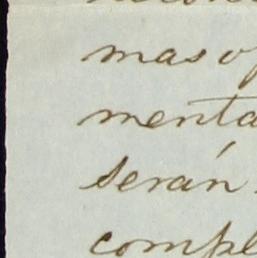 mas o
menta
serán
compl